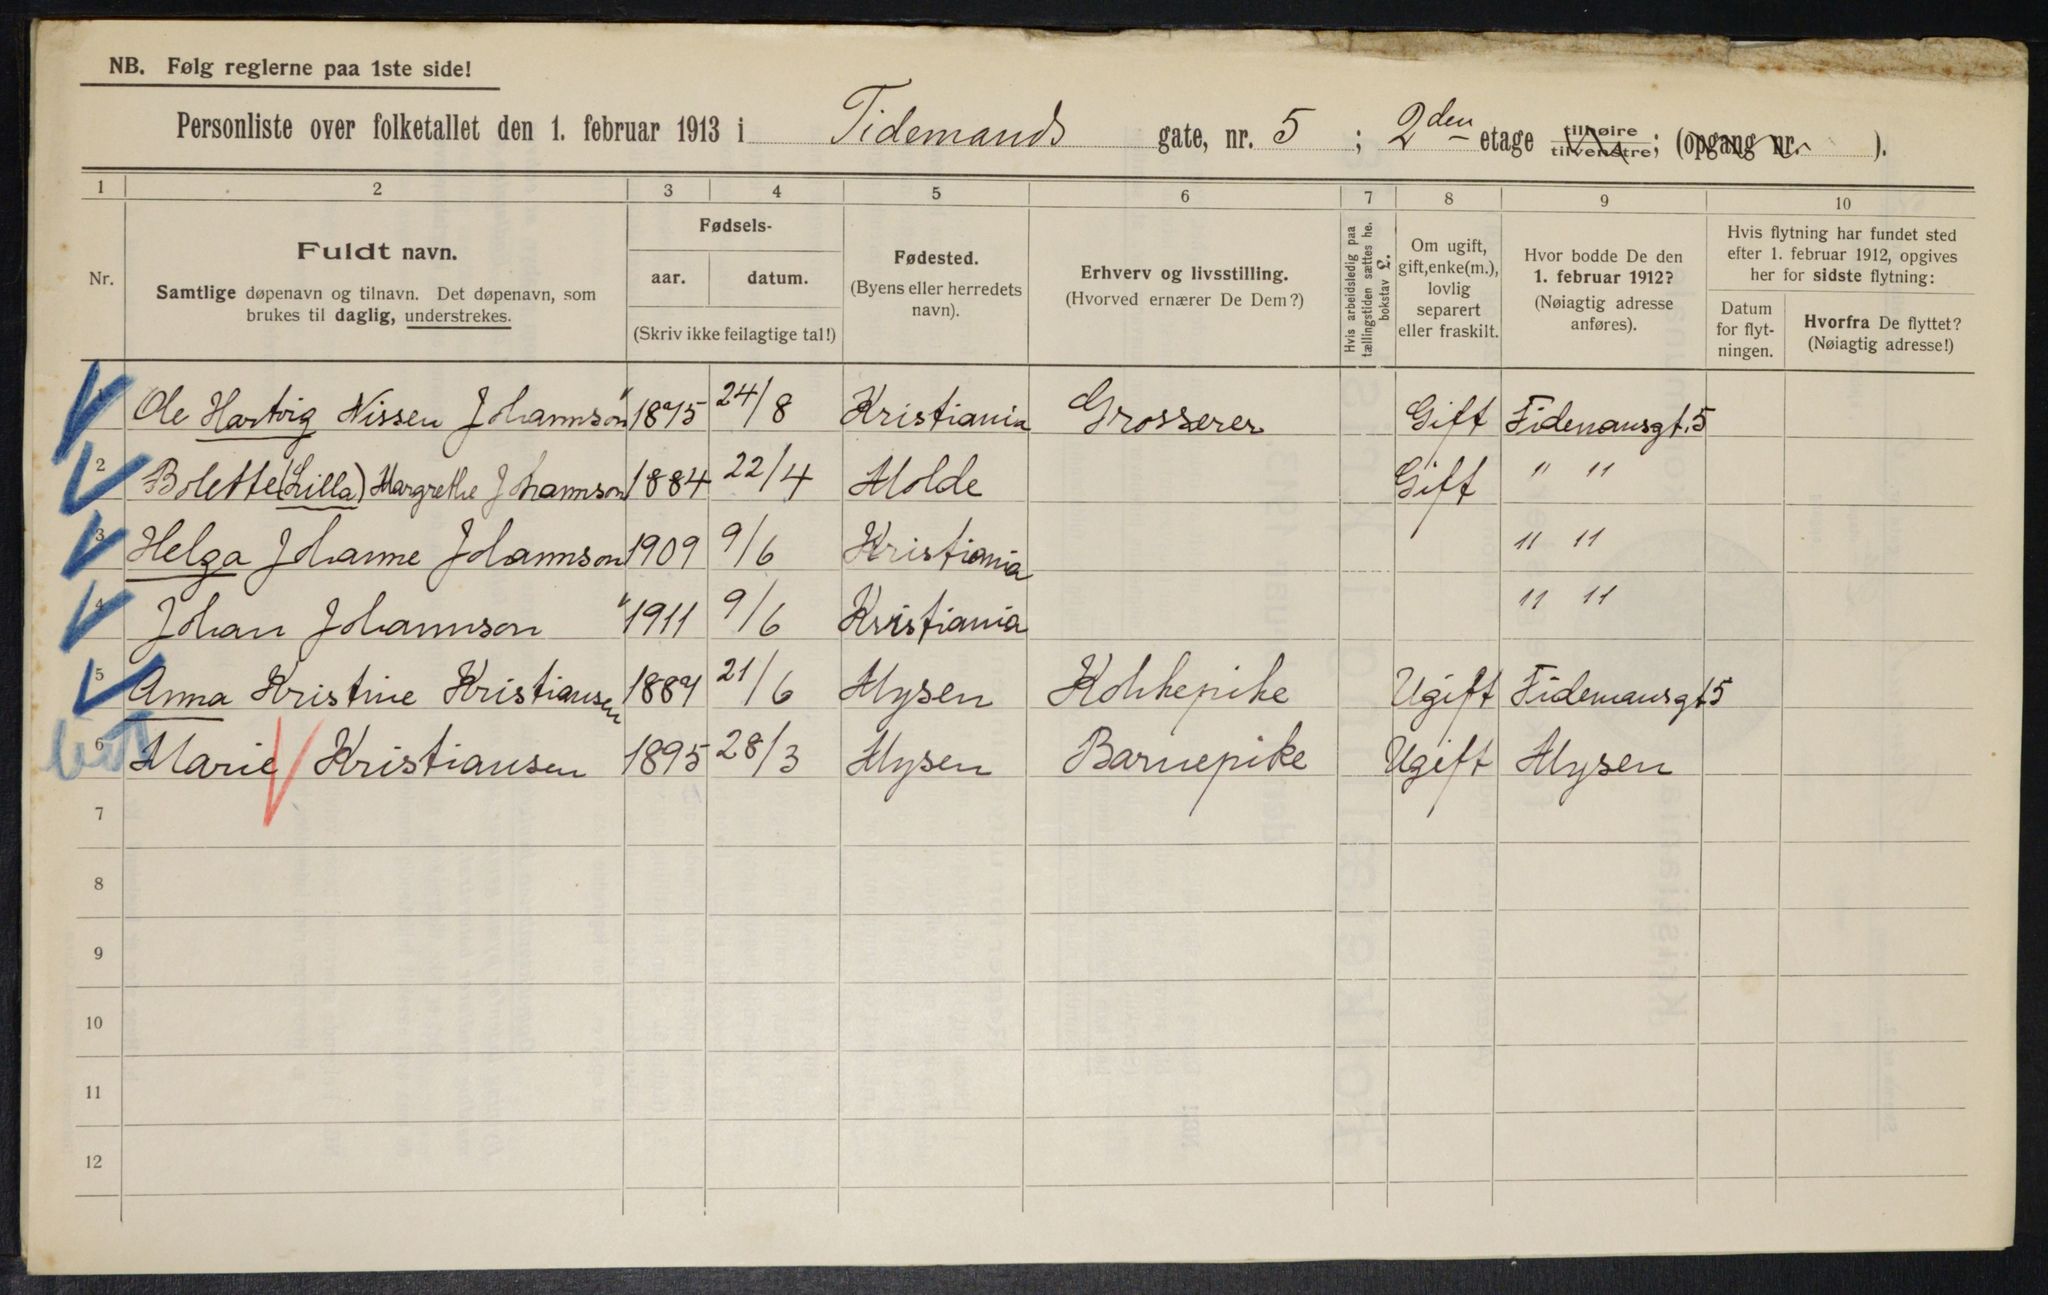 NB. Følg reglerne paa 1ste side!
Personliste over folketallet den 1. februar 1913 i Tidemands gate, nr. 5 ; 2den etage tilhøire tilvenstre; (opgang nr. ).
1 2 3 4 5 6 7 8 9 10
Nr.
Fuldt navn.
Samtlige døpenavn og tilnavn. Det døpenavn, som
brukes til daglig, understrekes.
Fødsels-
aar. datum.
(Skriv ikke feilagtige tal!)
Fødested.
(Byens eller herredets
navn).
Erhverv og livsstilling.
(Hvorved ernærer De Dem?)
Hvis arbeidsledig paa
tællingstiden sættes he.
bokstav L.
Om ugift,
gift, enke(m.),
lovlig
separert
eller fraskilt.
Hvor bodde De den
1. februar 1912?
(Nøiagtig adresse
anføres).
Hvis flytning har fundet sted
efter 1. februar 1912, opgives
her for sidste flytning:
Datum
for flyt-
ningen.
Hvorfra De flyttet?
(Nøiagtig adresse!)
1 Ole Hartvig Nissen Johannson 1875 24/8 Kristiania Grosserer Gift Tidemansgt. 5
2 Bolette (Lilla) Margrethe Johannson 1884 22/4 Molde Gift " "
3 Helga Johanne Johannson 1909 9/6 Kristiania " "
4 Johan Johannson 1911 9/6 Kristiania " "
5 Anna Kristine Kristiansen 1887 21/6 Mysen Kokkepike Ugift Tidemansgt 5
6 Marie Kristiansen 1895 28/3 Mysen Barnepike Ugift Mysen
7
8
9
10
11
12